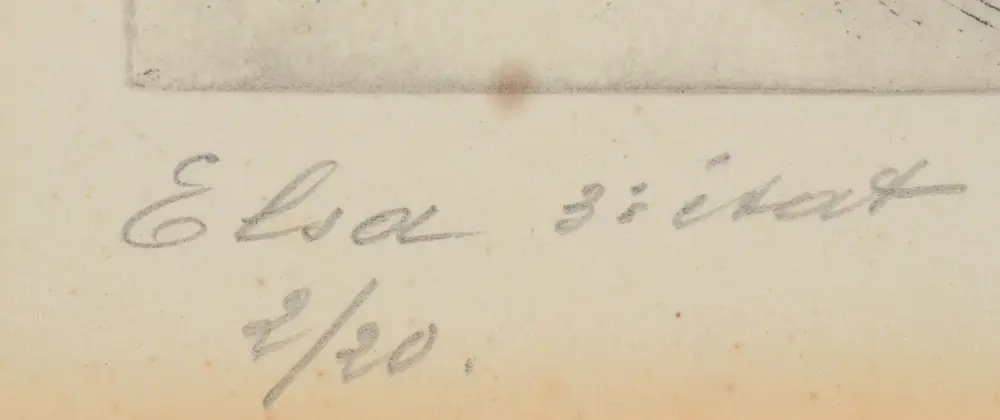 Elsa 3: état
2/20.